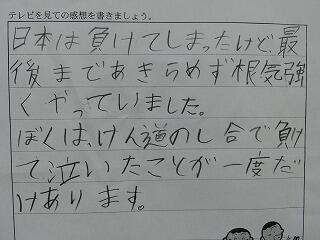 テレビを見ての感想を書きましょう。
日本は負けてしまったけど、最
後まであきらめず根気強
くやっていました。
ぼくは、けん道のし合で負け
て泣いたことが一度だ
けあります。